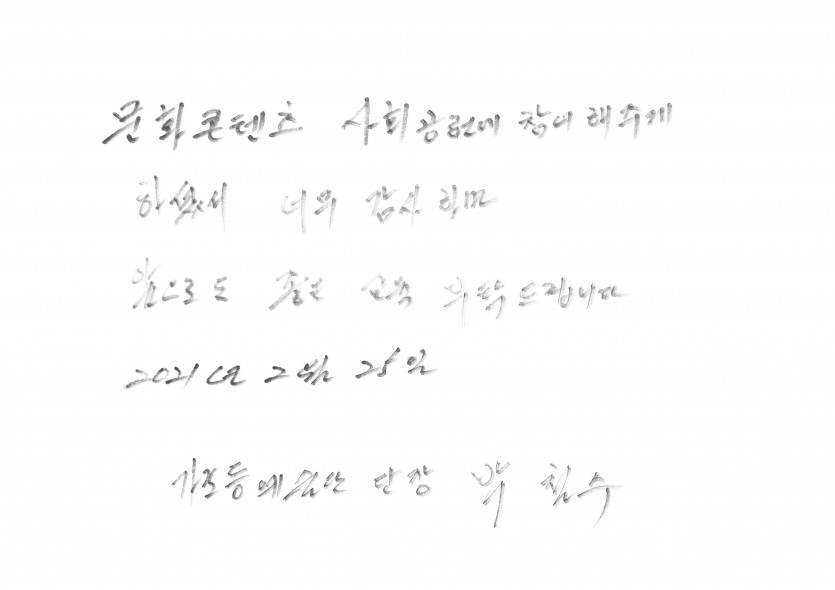 문화콘텐츠 사회공헌에 참여 해주게
하셨서 너무 감사 하며
앞으로도 좋은 교육 부탁드립니다
2021년 2월 25일
가로등예술단 단장 박 철수